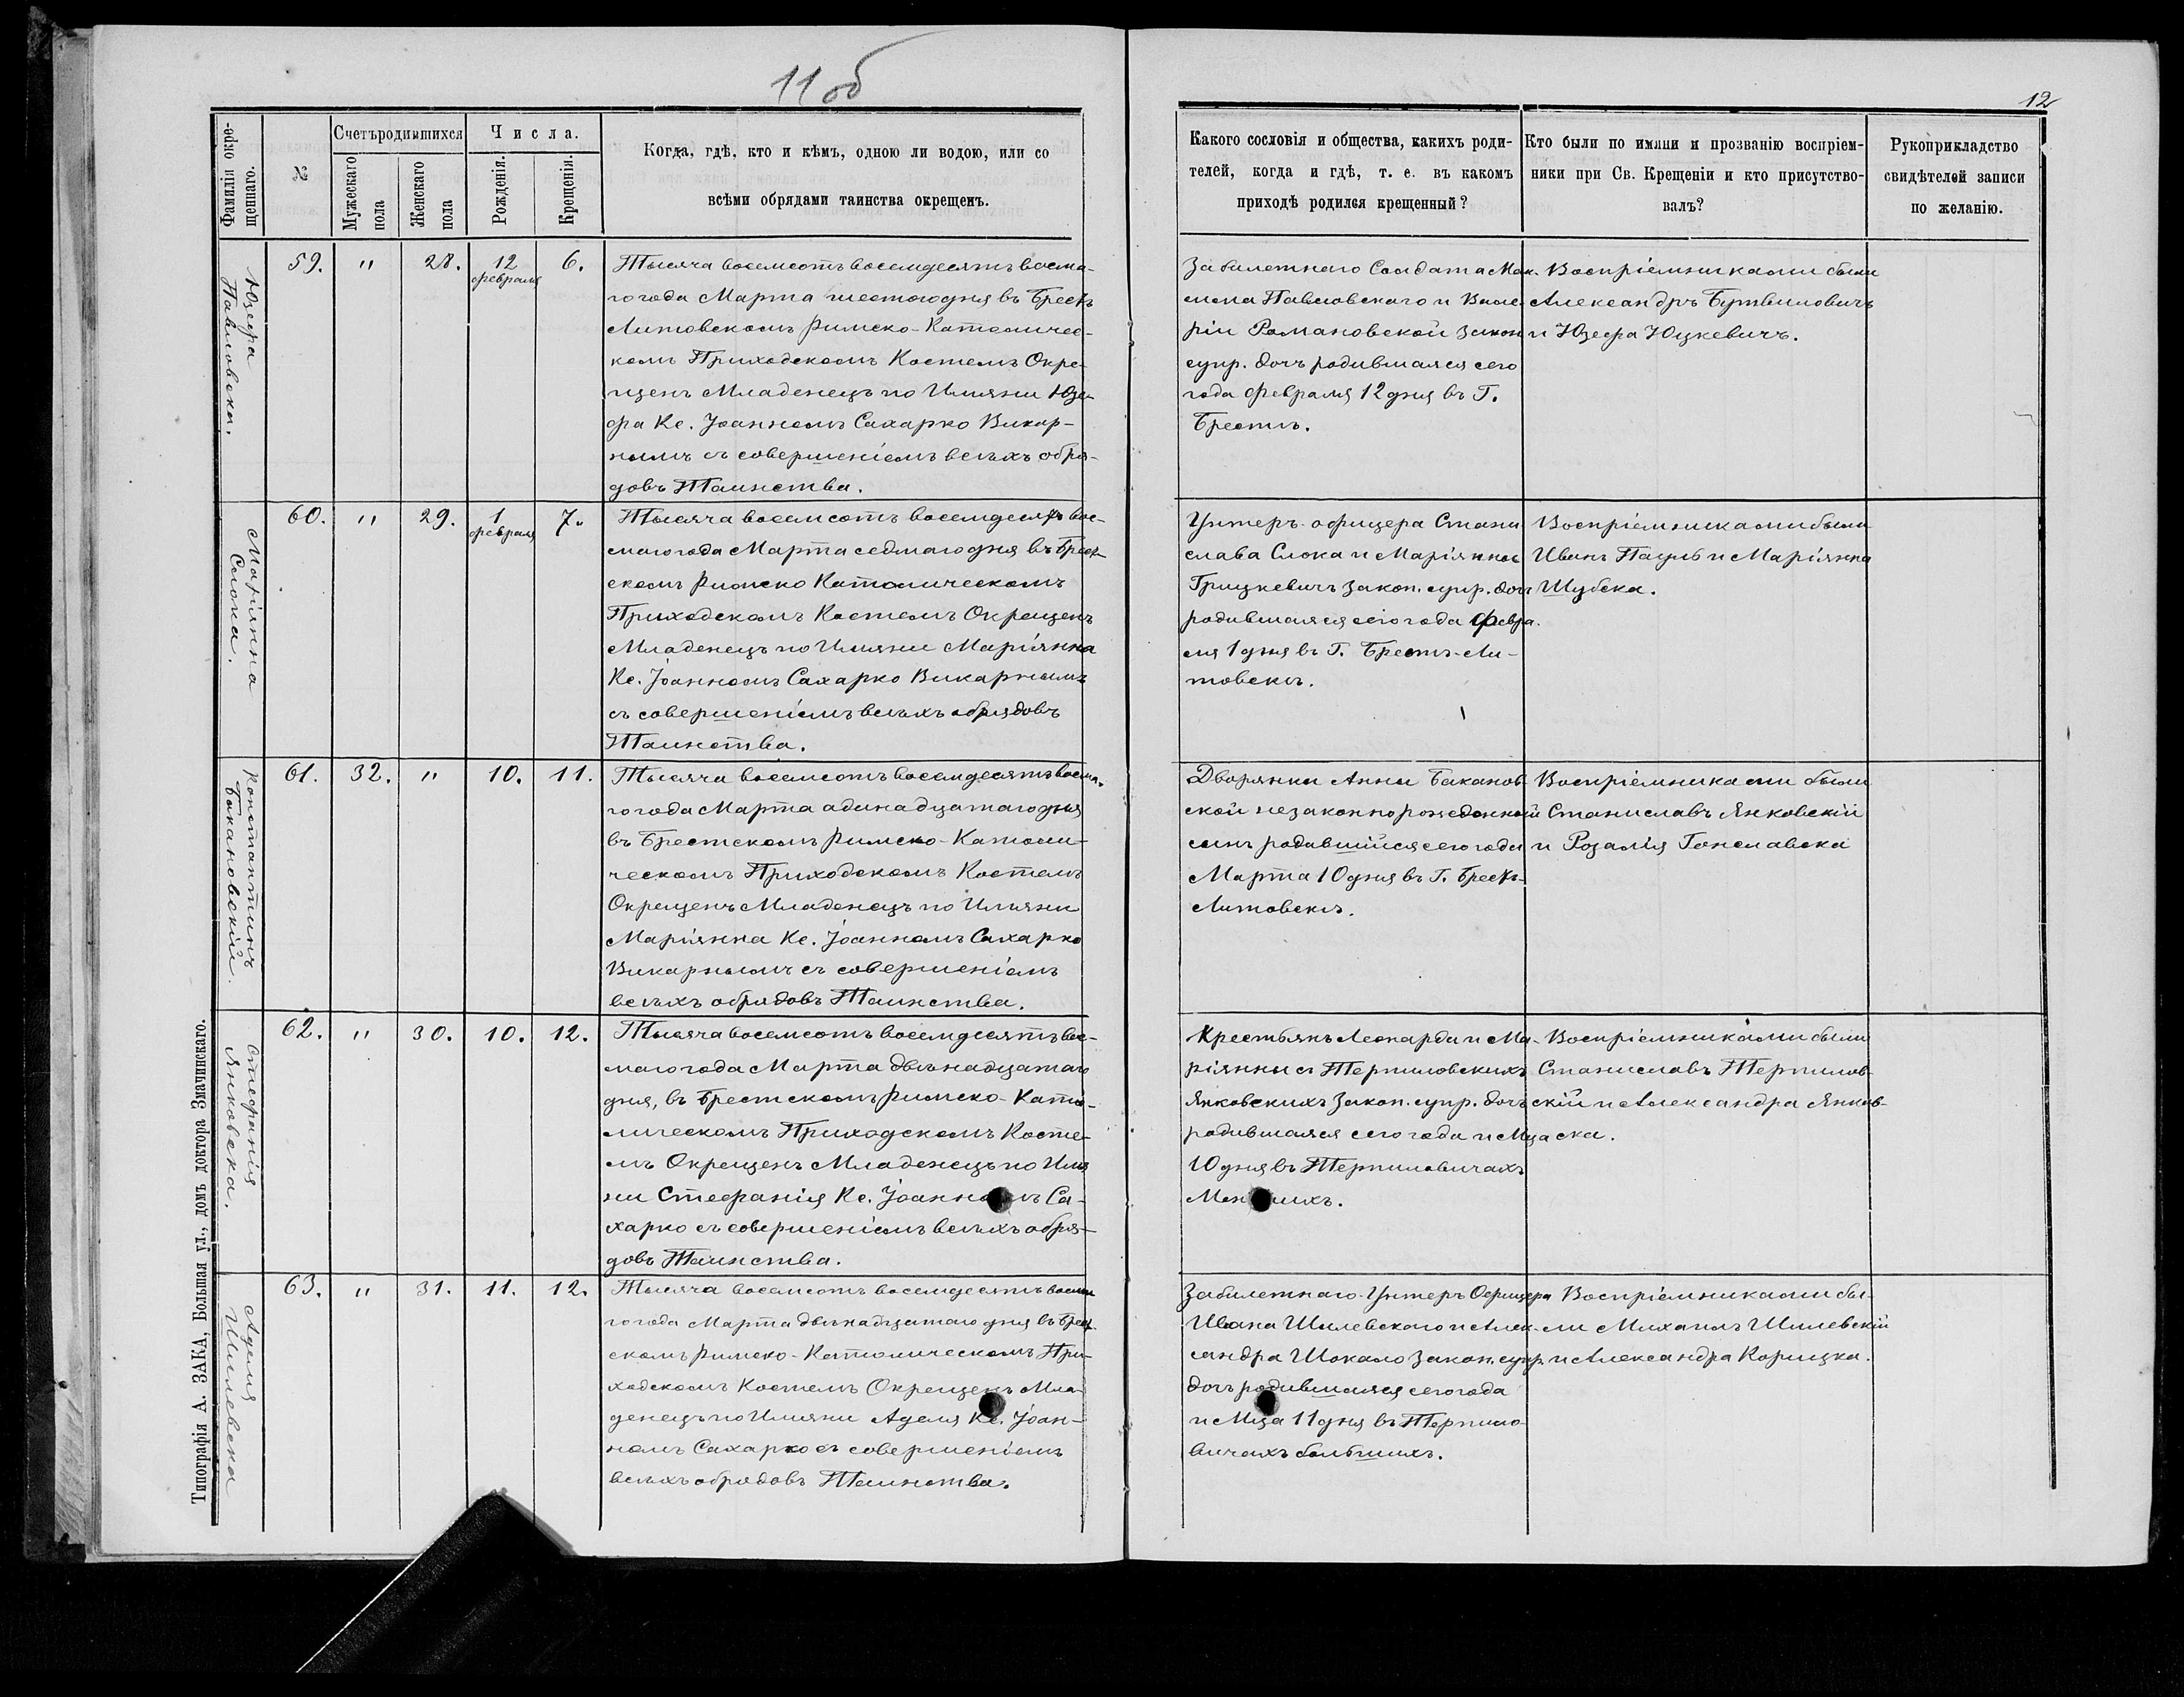 11 об
12
Фамиліи окре-
щеннаго.
№
Счетъ родившихся
Мужескаго
пола
Женскаго
пола
Числа.
Рожденія.
Крещенія.
Когда, гдѣ, кто и кѣмъ, одною ли водою, или со
всѣми обрядами таинства окрещенъ.
Какого сословія и общества, какихъ роди-
телей, когда и гдѣ, т. е. въ какомъ
приходѣ родился крещенный?
Кто были по имяни и прозванію воспріем-
ники при Св. Крещеніи и кто присутство-
валъ?
Рукоприкладство
свидѣтелей записи
по желанію.
Юзефа
Павловска.
59.
"
28.
12
февраля
6.
Тысяча восемсотъ восемдесятъ восма-
го года Марта шестого дня въ Брестъ
Литовскомъ Римско-Католичес-
комъ Приходскомъ Костелѣ Окре-
щенъ Младенецъ по Имяни Юзе-
фа Кс. Іоанномъ Сахарко Викар-
нымъ съ совершеніемъ всѣхъ обря-
довъ Таинства.
Забилетнаго Солдата Мак-
Павловскаго и Вале-
ріи Романовской закон
супр. дочь родившаяся сего
года февраля 12 дня въ Г.
Брестѣ.
Воспріемниками были
Александръ Бутвиловичъ
и Юзефа Юцкевичъ.
Маріянна
Слока.
60.
"
29.
1
февраля
7.
Тысяча восемсотъ восемдесятъ вос-
маго года Марта седмаго дня въ Брест-
скомъ Римско Католическомъ
Приходскомъ Костелѣ Окрещенъ
Младенецъ по Имяни Маріянна
Кс. Іоанномъ Сахарко Викарнымъ
съ совершеніемъ всѣхъ обрядовъ
Таинства.
Унтеръ-офицера Стани
слава Слока и Маріянны
Грицкевичъ закон. супр. доч
родившаяся сего года Февра-
ля 1 дня въ Г. Брестъ-Ли-
товскѣ.
Воспріемниками были
Иванъ Пацуль и Маріянна
Шубска.
Константинъ
Бакановскій.
61.
32.
"
10.
11.
Тысяча восемсотъ восемдесятъ восма-
го года Марта адинадцатаго дня
въ Брестскомъ Римско-Католи-
ческомъ Приходскомъ Костелѣ
Окрещенъ Младенецъ по Имяни
Маріянна Кс. Іоанномъ Сахарко
Викарнымъ съ совершеніемъ
всѣхъ обрядовъ Таинства.
Дворянки Анны Баканов-
ской незаконнорожденный
сынъ родившійся сего года
Марта 10 дня въ Г. Брестъ-
Литовскѣ.
Воспріемниками были
Станиславъ Янковскій
и Розалія Гонславска
Стефанія
Янковска.
62.
"
30.
10.
12.
Тысяча восемсотъ восемдесятъ вос-
маго года Марта двѣнадцатаго
дня, въ Брестскомъ Римско-Като-
лическомъ Приходскомъ Косте-
лѣ Окрещенъ Младенецъ по Имя
ни Стефанія Кс. Іоанномъ Са-
харко съ совершеніемъ всѣхъ обря-
довъ Таинства.
Крестьянъ Леонарда и Ма-
ріянны съ Терпиловскихъ
Янковскихъ закон. супр. дочь
родившаяся сего года и Мца
10 дня въ Терпиловичахъ
Меньшихъ.
Воспріемниками были
Станиславъ Терпилов-
скій и Александра Янков-
ска.
Аделя
Шилевска
63.
"
31.
11.
12.
Тысяча восемсотъ восемдесятъ восма
го года Марта двѣнадцатаго дня въ Брест
скомъ Римско-Католическомъ При-
ходскомъ Костелѣ Окрещенъ Мла-
денецъ по Имяни Аделя Кс. Іоан-
номъ Сахарко съ совершеніемъ
всѣхъ обрядовъ Таинства.
Забилетнаго Унтеръ Офицера
Ивана Шилевскаго и Алек-
сандра Шокало закон. супр.
дочь родившаяся сего года
и Мца 11 дня въ Терпило-
вичахъ большихъ.
Воспріемниками бы-
ли Михаилъ Шилевскій
и Александра Корицка.
Типографія А. ЗАКА, Большая ул., домъ доктора Змачинскаго.